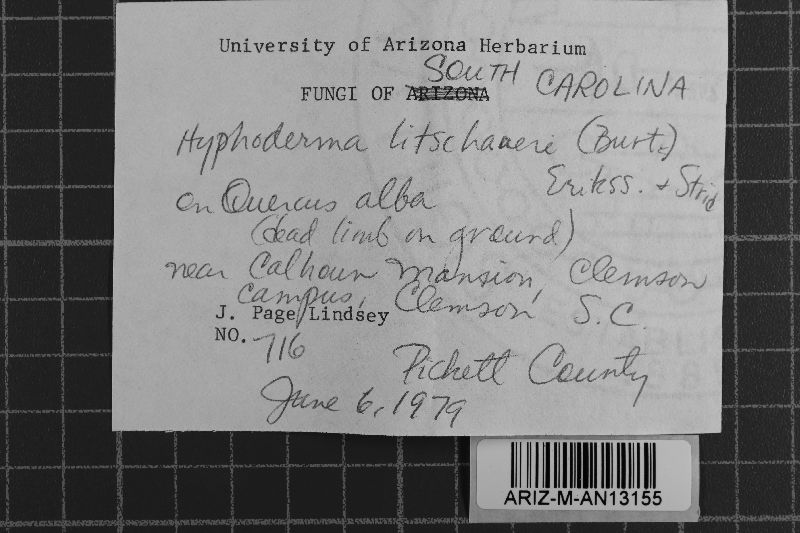 University of Arizona Herbarium
FUNGI OF ARIZONA SOUTH CAROLINA
Hyphoderma litschaueri (Burt.)
Erikss. + Strid
on Quercus alba
(dead limb on ground)
near Calhoun Mansion, Clemson
campus, Clemson, S.C.
J. Page Lindsey
NO. 716
Pickett County
June 6, 1979
ARIZ-M-AN13155